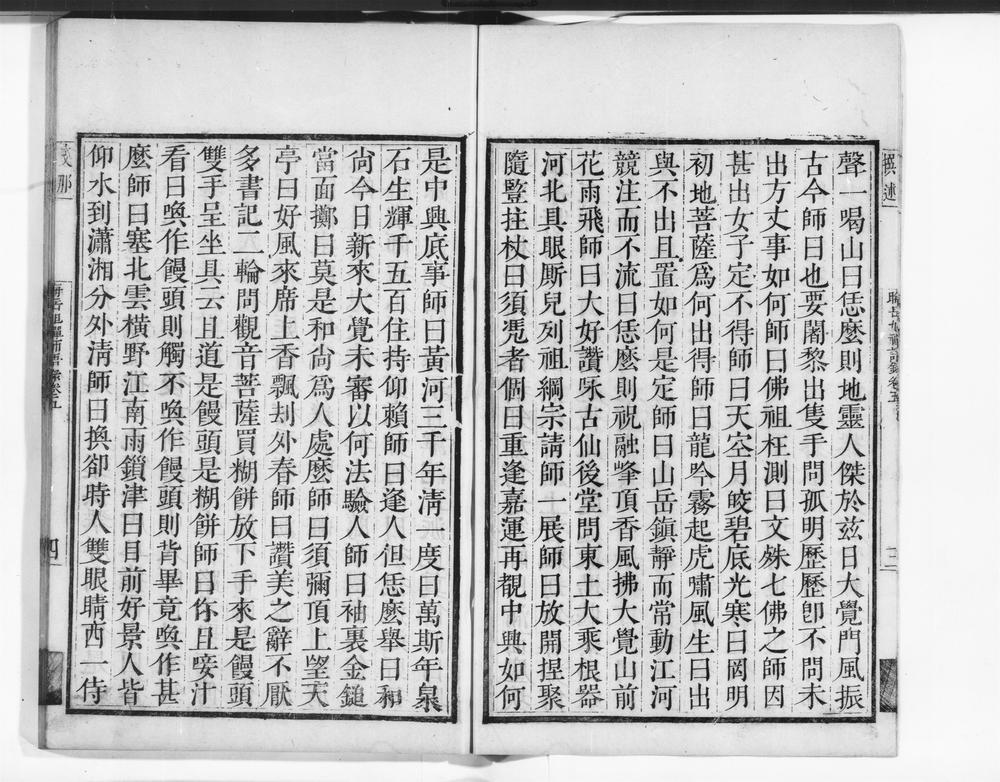 聲一喝山曰恁麼則地靈人傑於茲日大覺門風振
古今師曰也要闍黎出隻手問孤明歷歷卽不問未
出方丈事如何師曰佛祖枉測曰文殊七佛之師因
甚出女子定不得師曰天空月皎碧底光寒曰罔明
初地菩薩爲何出得師曰龍吟霧起虎嘯風生曰出
與不出且置如何是定師曰山岳鎭靜而常動江河
競注而不流曰恁麼則祝融峰頂香風拂大覺山前
花雨飛師曰大好讚咏古仙後堂問東土大乘根器
河北具眼厮兒列祖綱宗請師一展師曰放開捏聚
隨豎拄杖曰須凴者個曰重逢嘉運再覩中興如何
是中興底事師曰黃河三千年淸一度曰萬斯年泉
石生輝千五百住持仰賴師曰逢人但恁麼舉曰和
尙今日新來大覺未審以何法驗人師曰袖裏金鎚
當面擲曰莫是和尙爲人處麼師曰須彌頂上望天
亭曰好風來席上香飄刧外春師曰讚美之辭不厭
多書記二輪問觀音菩薩買糊餠放下手來是饅頭
雙手呈坐具云且道是饅頭是糊餠師曰你且唼汁
看曰喚作饅頭則觸不喚作饅頭則背畢竟喚作甚
麼師曰塞北雲橫野江南雨鎖津曰目前好景人皆
仰水到瀟湘分外淸師曰換卻時人雙眼睛西一侍
四